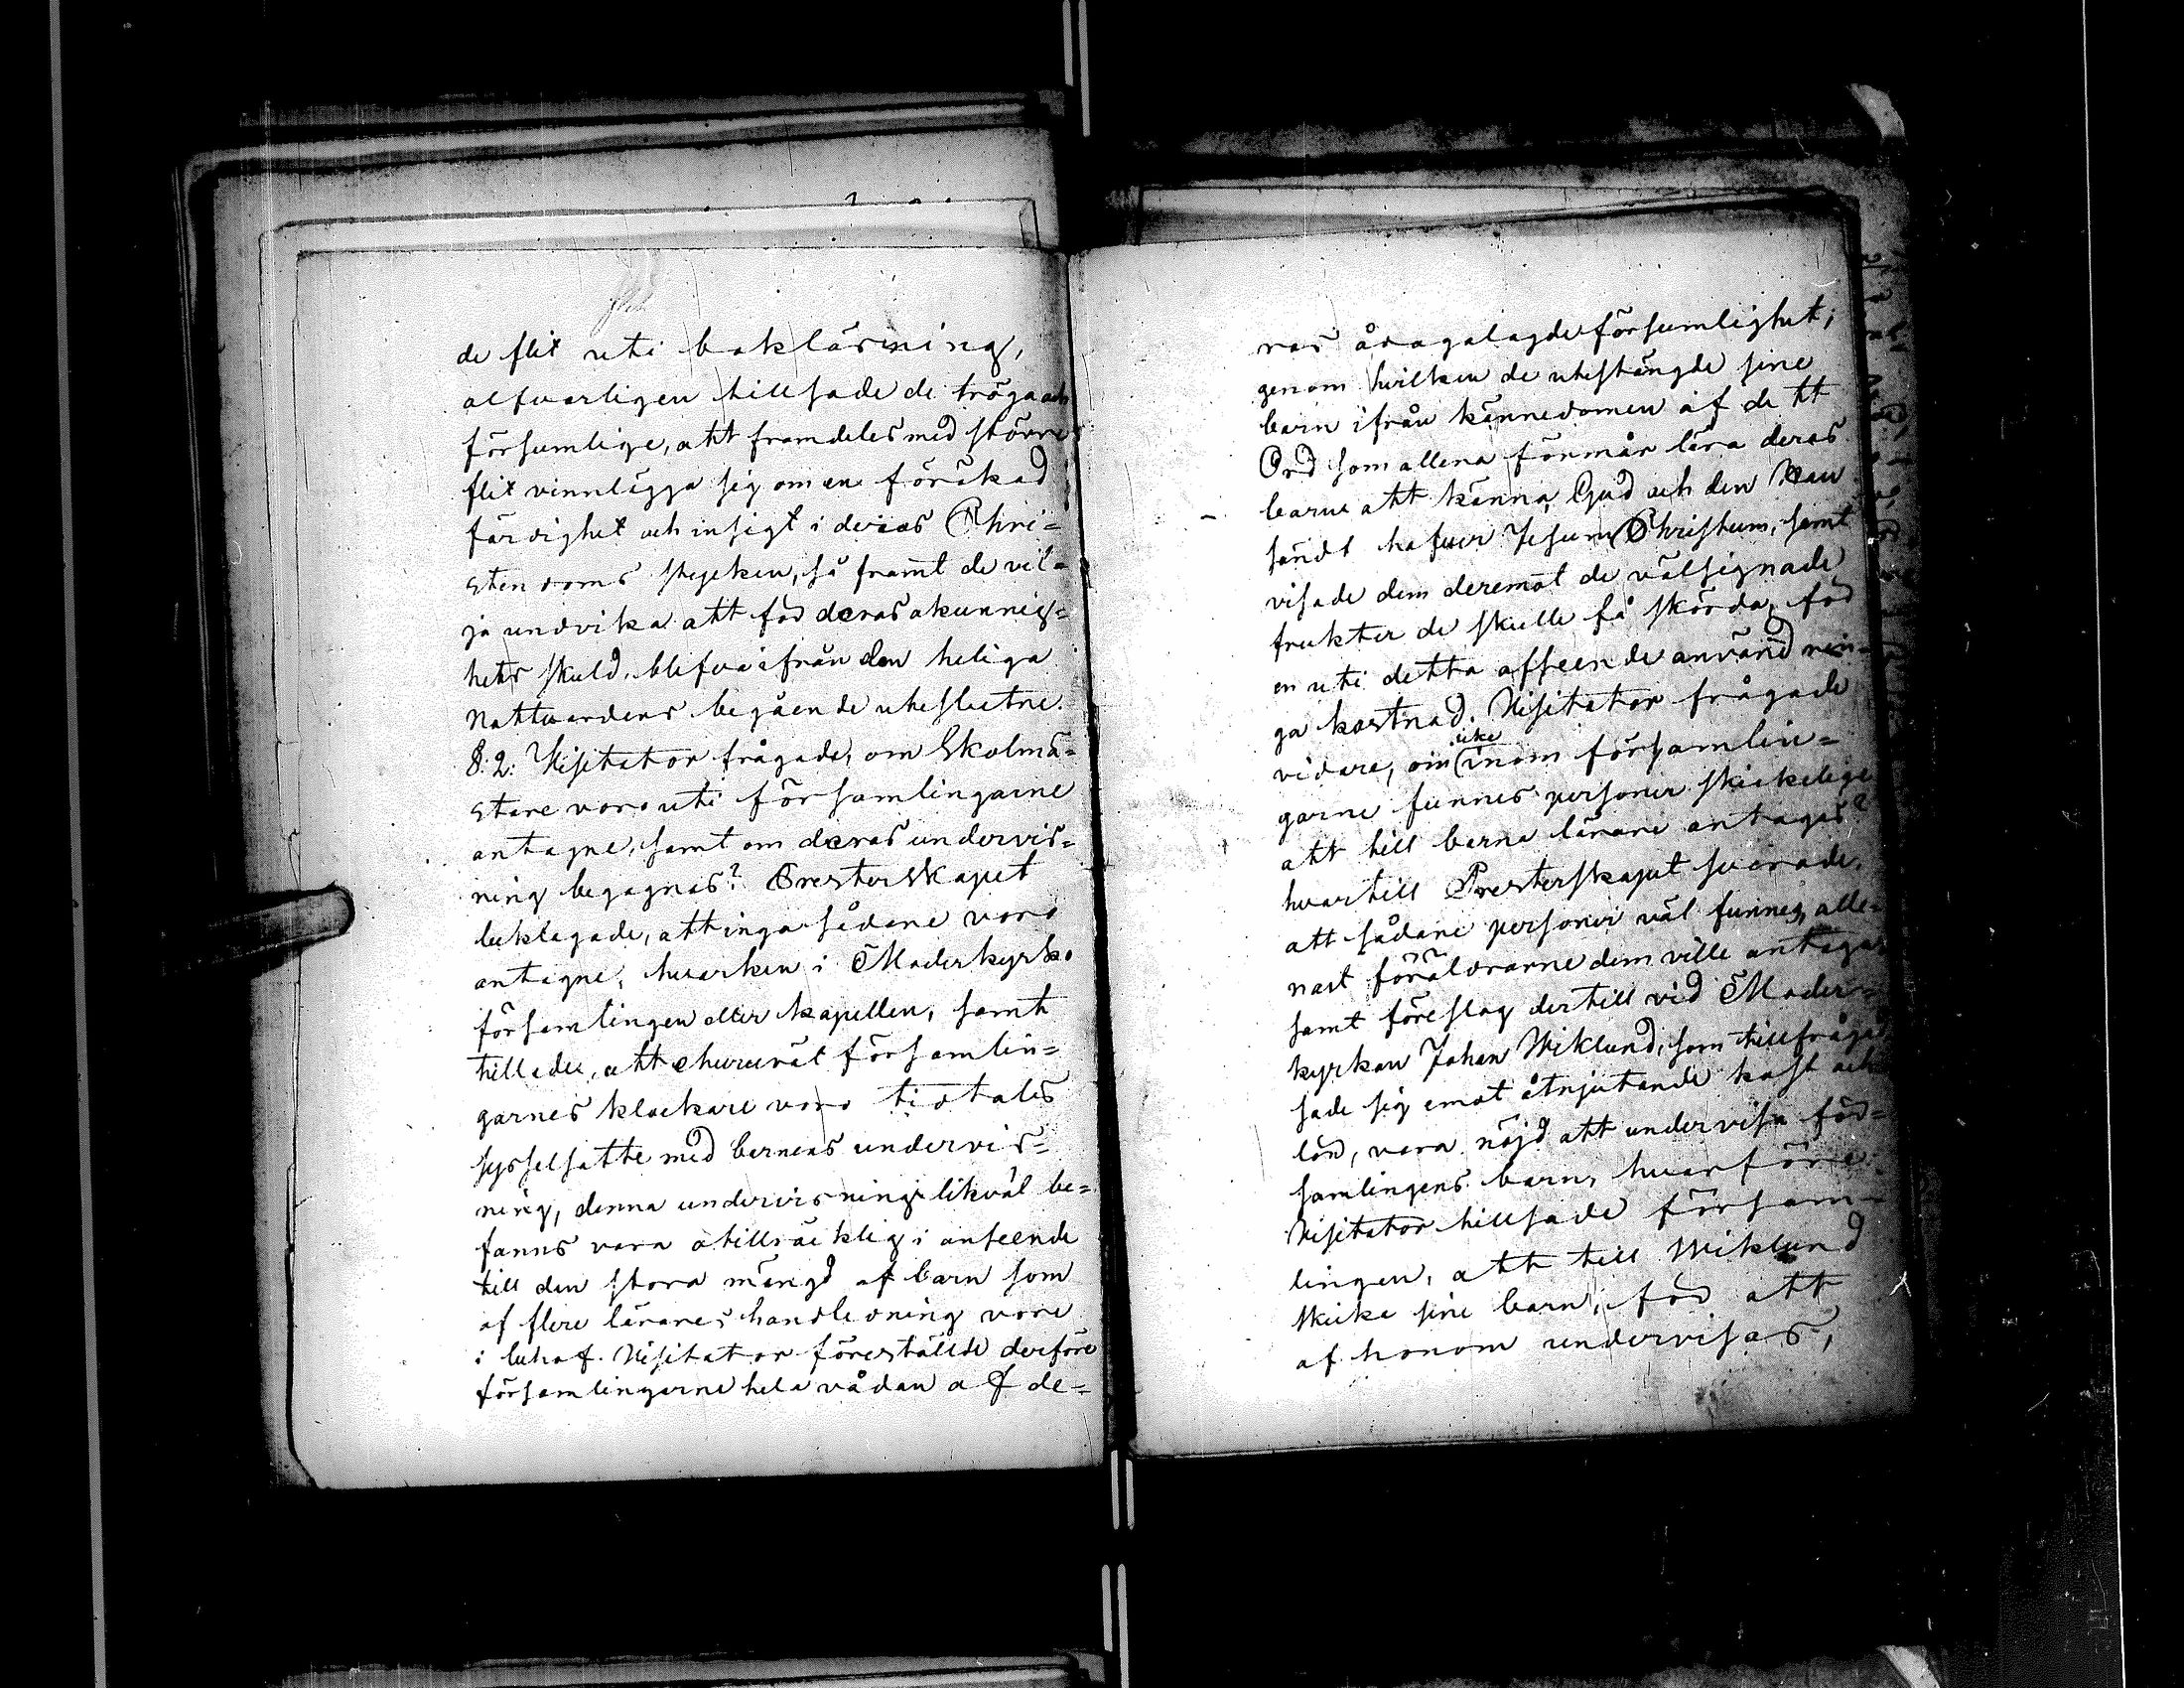 de flit uti bokläsning,
alfvarligen tillsade de tröga och
försumlige, att framdeles med större
flit vinnlägga sig om en förökad
färdighet och insigt i deras Chri=
stendoms stycken, så framt de vil=
ja undvika att för deras okunnig=
hets skuld, blifva ifrån den heliga
Nattvardens begående uteslutne.
§. 2: Visitator frågade, om Skolmä=
stare voro uti församlingarne
antagne, samt om deras undervis=
ning begagnas? Presterskapet
beklagade, att inga sådane voro
antagne, hvarken i Moderkyrko
församlingen eller kapellen, samt
tillade, att ehuruväl församlin=
garnes klockare voro tidtals
sysselsatte med barnens undervis=
ning, denna undervisning likväl be=
fanns vara otillräcklig i anseende
till den stora mängd af barn som
af flere lärares handledning vore
i behof. Visitator föreställde derföre
församlingarne hela vådan af de=
ras ådagalagde försumlighet,
genom hvilken de utestängde sine
barn ifrån kännedomen af dett
Ord som allena förmår lära deras
barn att känna Gud och den Han
sändt hafver Jesum Christum, samt
visade dem deremot de välsignade
frukter de skulle få skörda, för
en uti detta afseende använd rin=
ga kostnad. Visitator frågade
vidare, om icke inom församlin=
garne funnes personer skickelige
att till barna lärare antagas?
hvartill Presterskapet svarade,
att sådane personer väl funnes, alle=
nast föräldrarne dem ville antaga,
samt föreslog dertill vid Moder=
kyrkan Johan Wiklund, som tillfrågad
sade sig emot åtnjutande kost och
lön, vara nöjd att undervisa för=
samlingens barn, hvarföre
Visitator tillsade försam=
lingen, att till Wiklund
skicka sine barn, för att
af honom undervisas,